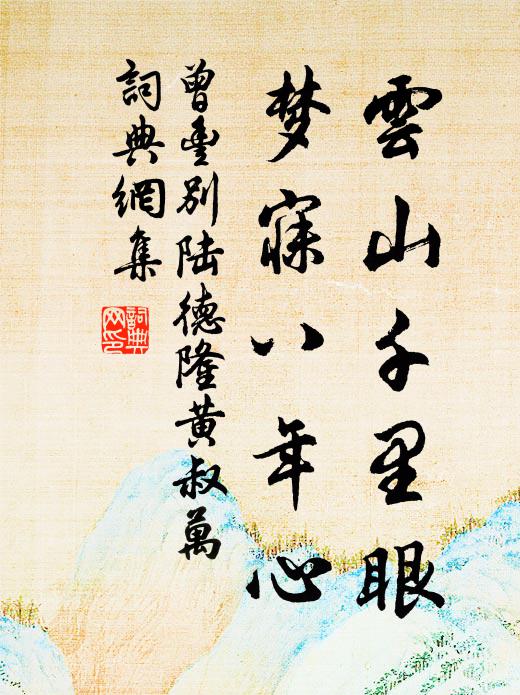 雲山千里眼
梦寐八年心
曾豐别陆德隆黄叔萬
詞典網集
詞典网印